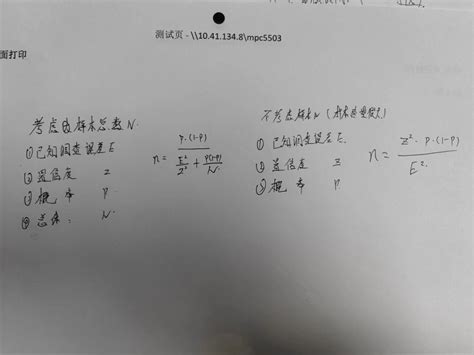 测试页 - \\10.41.134.8\mpc5503
面打印
考虑由样本总数 N.
① 已知调查误差 E
② 置信度 Z
③ 概率 P
④ 总体: N.
n = P·(1-P) / (E²/Z² + P(1-P)/N)
不考虑样本N (样本总量很大)
① 已知调查误差 E.
② 置信度 Z
③ 概率 P.
n = Z²·P·(1-P) / E².